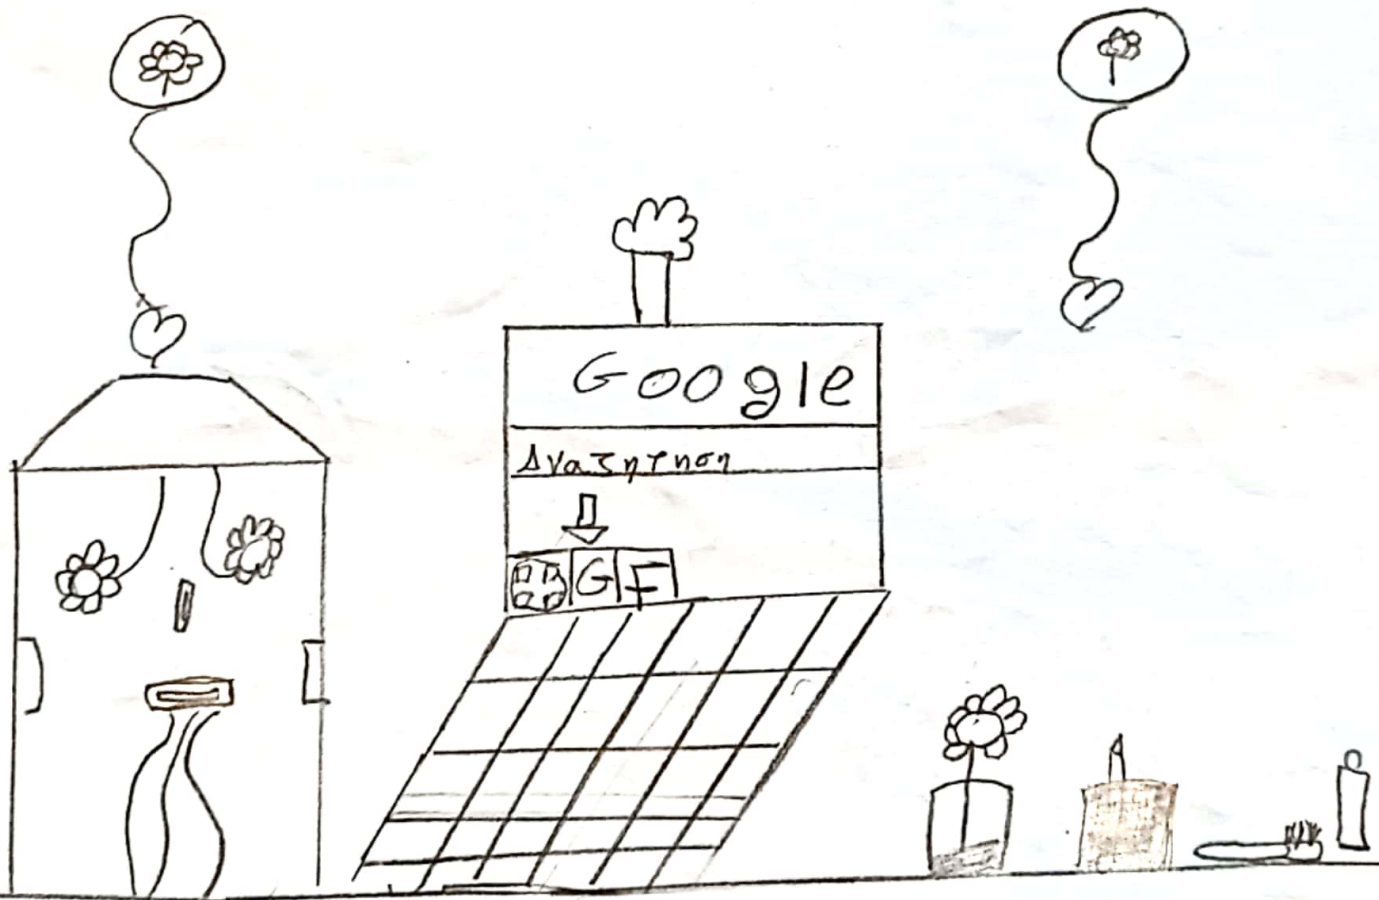 Google
Αναζητηση
G F